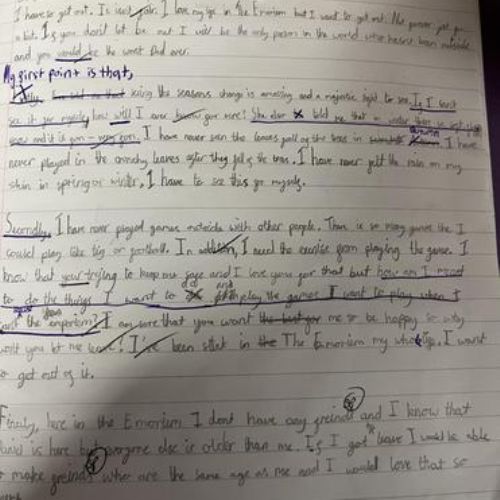 I have to get out. It isn't fair. I love my life in the Emorium but I want to get out. The power get you
a bit. If you don't let me out I will be the only person in the world who hasn't been outside
and you would be the worst Dad ever.
My first point is that,
seeing the seasons change is amazing and a majestic sight to see. If I can't
see it for myself how will I ever know for sure! She also told me that in winter
snow and it is fun - very fun. I have never seen the leaves fall of the trees in autumn. I have
never played in the crunchy leaves after they fell of the trees. I have never felt the rain on my
skin in spring or winter. I have to see this for myself.
Secondly, I have never played games outside with other people. There is so many games the I
could play like tig or football. In addition, I need the exercise from playing the game. I
know that your trying to keep me safe and I love you for that but how am I meant
to do the things I want to do and play the games I want to play when I
the emporium? I am sure that you want the me to be happy so why
won't you let me leave! I've been stuck in the The Emorium my whole life. I want
to get out of it.
Finally, here in the Emorium I dont have any freinds and I know that
is here but everyone else is older than me. If I got to leave I would be able
to make freinds who are the same age as me and I would love that so